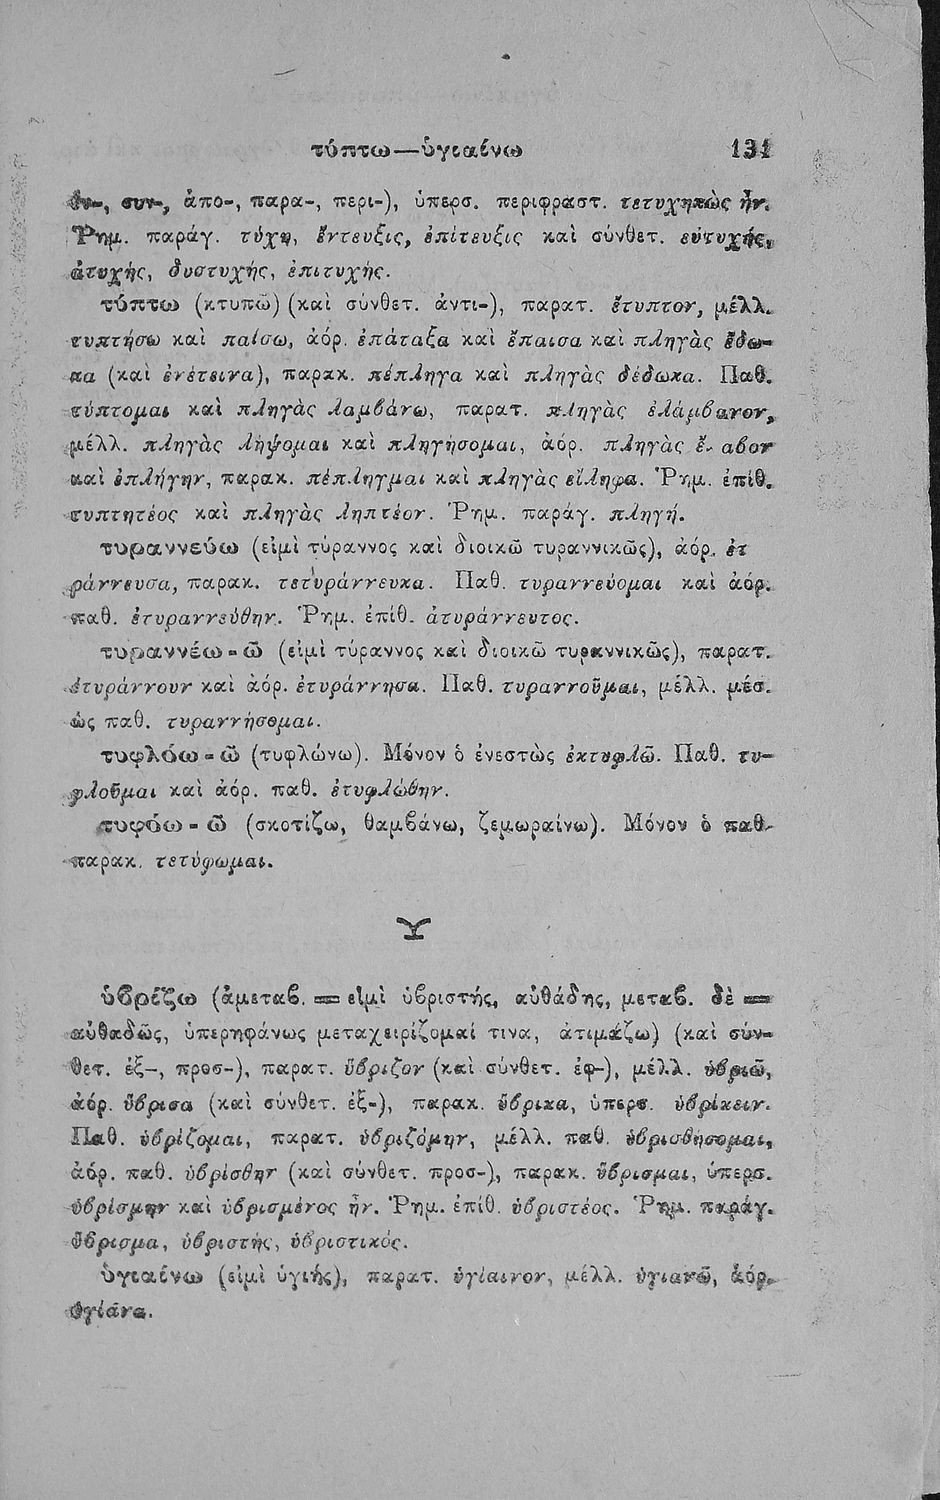 τύπτω—ὑγιαίνω 131
ἐν-, συν-, ἀπο-, παρα-, περι-), ὑπερσ. περιφραστ. τετυχηκὼς ἦν.
Ῥημ. παράγ. τύχη, ἔντευξις, ἐπίτευξις καὶ σύνθετ. εὐτυχής,
ἀτυχής, δυστυχής, ἐπιτυχής.
τύπτω (κτυπῶ) (καὶ σύνθετ. ἀντι-), παρατ. ἔτυπτον, μέλλ.
τυπτήσω καὶ παίσω, ἀόρ. ἐπάταξα καὶ ἔπαισα καὶ πληγὰς ἔδω-
κα (καὶ ἐνέτεινα), παρακ. πέπληγα καὶ πληγὰς δέδωκα. Παθ.
τύπτομαι καὶ πληγὰς λαμβάνω, παρατ. πληγὰς ἐλάμβανον,
μέλλ. πληγὰς λήψομαι καὶ πληγήσομαι, ἀόρ. πληγὰς ἔλαβον
καὶ ἐπλήγην, παρακ. πέπληγμαι καὶ πληγὰς εἴληφα. Ῥημ. ἐπίθ.
τυπτητέος καὶ πληγὰς ληπτέον. Ῥημ. παράγ. πληγή.
τυραννεύω (εἰμὶ τύραννος καὶ διοικῶ τυραννικῶς), ἀόρ. ἐτ
ράννευσα, παρακ. τετυράννευκα. Παθ. τυραννεύομαι καὶ ἀόρ.
παθ. ἐτυραννεύθην. Ῥημ. ἐπίθ. ἀτυράννευτος.
τυραννέω-ῶ (εἰμὶ τύραννος καὶ διοικῶ τυραννικῶς), παρατ.
ἐτυράννουν καὶ ἀόρ. ἐτυράννησα. Παθ. τυραννοῦμαι, μέλλ. μέσ.
ὡς παθ. τυραννήσομαι.
τυφλόω-ῶ (τυφλώνω). Μόνον ὁ ἐνεστὼς ἐκτυφλῶ. Παθ. τυ-
φλοῦμαι καὶ ἀόρ. παθ. ἐτυφλώθην.
τυφόω-ῶ (σκοτίζω, θαμβάνω, ζεμωραίνω). Μόνον ὁ παθ.
παρακ. τετύφωμαι.
Υ
ὑβρίζω (ἀμεταβ. = εἰμὶ ὑβριστής, αὐθάδης, μεταβ. δὲ =
αὐθαδῶς, ὑπερηφάνως μεταχειρίζομαί τινα, ἀτιμάζω) (καὶ σύν-
θετ. ἐξ-, προσ-), παρατ. ὕβριζον (καὶ σύνθετ. ἐφ-), μέλλ. ὑβριῶ,
ἀόρ. ὕβρισα (καὶ σύνθετ. ἐξ-), παρακ. ὕβρικα, ὑπερσ. ὑβρίκειν.
Παθ. ὑβρίζομαι, παρατ. ὑβριζόμην, μέλλ. παθ. ὑβρισθήσομαι,
ἀόρ. παθ. ὑβρίσθην (καὶ σύνθετ. προσ-), παρακ. ὕβρισμαι, ὑπερσ.
ὑβρίσμην καὶ ὑβρισμένος ἦν. Ῥημ. ἐπίθ. ὑβριστέος. Ῥημ. παράγ.
ὕβρισμα, ὑβριστής, ὑβριστικός.
ὑγιαίνω (εἰμὶ ὑγιής), παρατ. ὑγίαινον, μέλλ. ὑγιανῶ, ἀόρ.
ὑγίᾱνα.